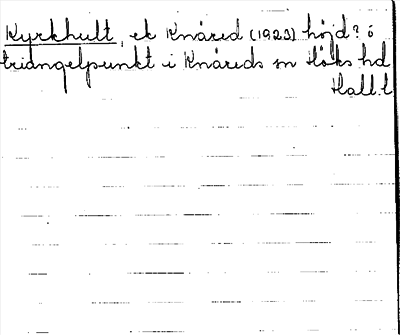 Kyrkhult, ek Knäred (1923) höjd? o
triangelpunkt i Knäreds sn Höks hd
Hall. l